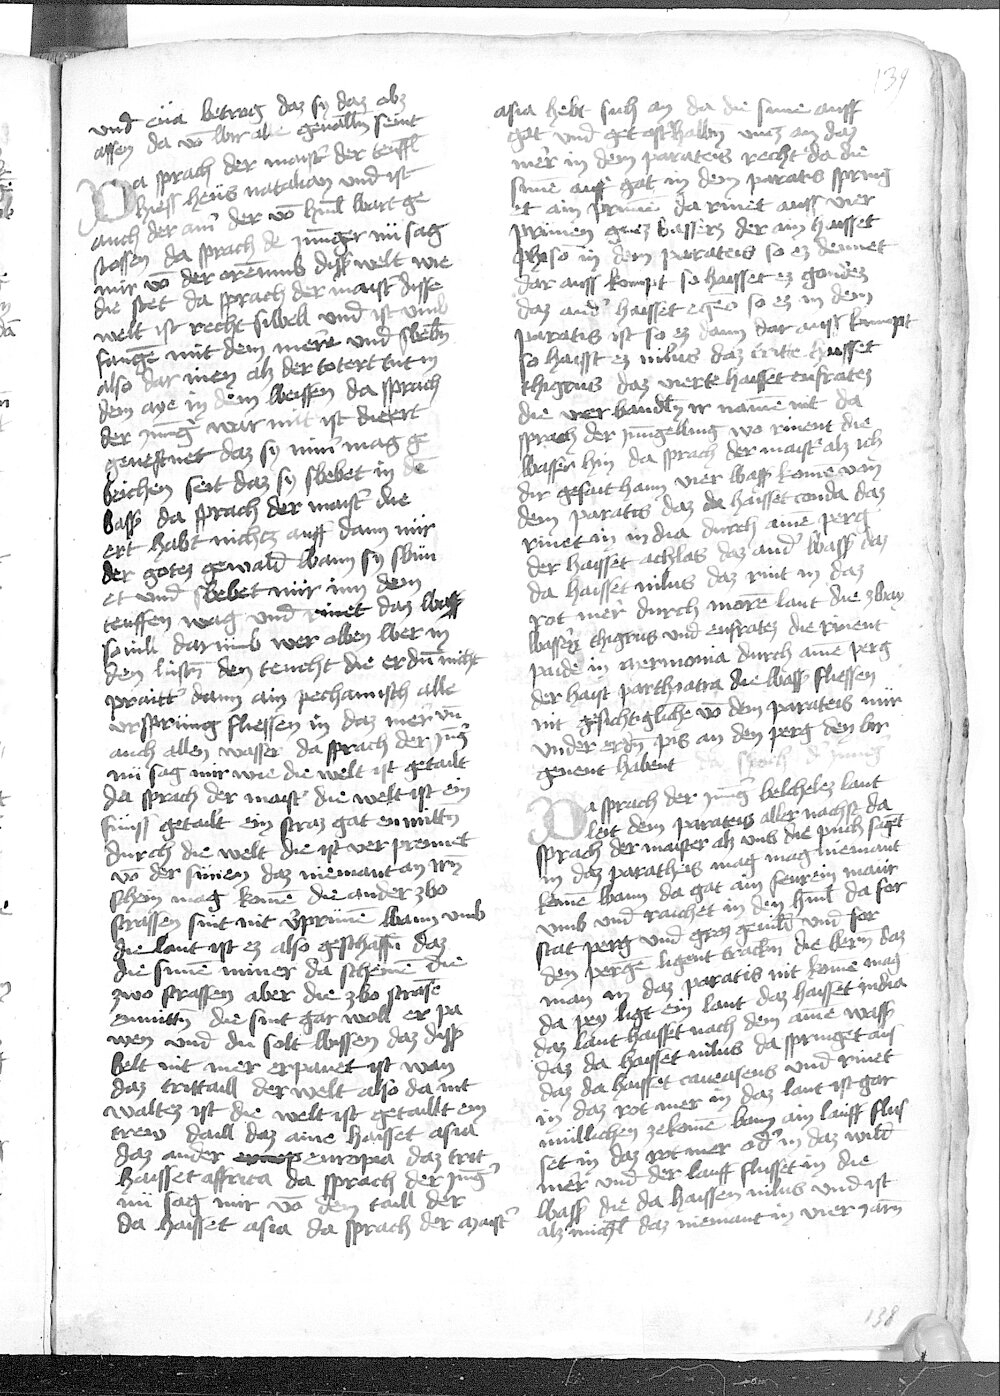 139
vnd eua betrog daz sy daz obz
assen da vō wir alle geuallen seint
Da sprach der maist' der teuffl
hiess heüs natalian vnd ist
auch der ain' der vō himl wart ge
stossen da sprach de jünger nü sag
mir vō der orēnumb diss welt wie
die stet da sprach der maist' disse
welt ist recht sinbell vnd ist vmb
fangē mit dem mere vnd swebn
also dar inen alz der totert tut in
dem aye in dem weissen da sprach
der jüng' war mit ist die ert
geuestnet daz sy nim' mag ge
brichen seit daz sy swebet in dē
wass' da sprach der maist' die
ert habt nichtz auff dann nür
der gotez gewald wann sy swün
et vnd swebet nür inn dem
teuffen wag vnd rinet daz wass'
so nüli darumb wer oben wer in
den lüftn den teucht die erdn nicht
praitt' dann ain pechamisch alle
vrspring fliessen in daz mer vn
auch allen wasser da sprach der jüng'
nü sag mir wie die welt ist getailt
da sprach der maist' die welt ist ein
fünff getailt ein straz gat enmittn
durch die welt die ist verprennet
vō der sunen daz niemant an irm
schein mag komē die ander zwo
strassen sint nit v'prüne wann vmb
die laut ist ez also geschaffn daz
die sunē niner da scheinē die
zwo strassen aber die zwo strasse
enmittn die sint gar woll er pa
wen vnd du solt wissen daz diss
welt nit mer erpauet ist wan
daz trittaill der welt also da mit
waltez ist die welt ist getaillt ein
trew daill daz aine haisset asia
daz ander europia daz trit
haisset affrica da sprach der jüng'
nü sag mir vō dem taill der
da haisset asia da sprach der maist'
asia hebt sich an da die sunne auff
gat vnd get osthalbn vncz an daz
mer in dem parateis recht da die
sunē auff gat in dem paratis spring
et ain prune da rinet auss vier
prünnen gucz wassers der ain haisset
phison in dem parateis so ez dennet
dar auss kumpt so haisset ez gondez
daz and' haisset egeo so ez in dem
paratis ist so ez dann dar auss kumpt
so haisst ez nilus daz drite haisset
thigrus daz vierte haisset eufratez
die verwandln ir name nit da
sprach der jüngelling wo rinent die
wasser hin da sprach der maist' alz ich
dir geseit hann vier wass' kome van
dem paratis daz da haisset conda daz
rinet in india durch aine perg
der haisset achlas daz and' wass' daz
da haisset nilus daz rint in daz
rot mer durch morē lant die zway
wasser thigris vnd eufratez die rinent
paide in aermonia durch aine perg
der haist parthiatra die wass' fliessen
nit gesichtigliche vō dem parateis nür
vnder erdn pis an den perg den wir
genent habent
Da sprach der jüng' welchelez lant
leit dem parateis aller nachst da
sprach der maister alz vns die puch saget
in daz paratheis mag mag niemant
komē wann da gat ain feurein maür
vmb vnd raichet in den himl da for
stat perg vnd groz geuild vnd for
den pergē ligent tracken die wern daz
man in daz paratis nit kome mag
da pey ligt ein lant daz haisset india
daz lant haisset nach dem aine wass'
daz da haisset nilus da springet aus
daz da haisset caucasens vnd rinet
in daz rot mer in daz lant ist gar
müllichen zekomē wann ain lauff flus
set in daz rot mer od' in daz wild
mer vnd der lauff flusset in die
wass' die da haissen nilus vnd ist
alz michl daz niemant in vier jarn
138